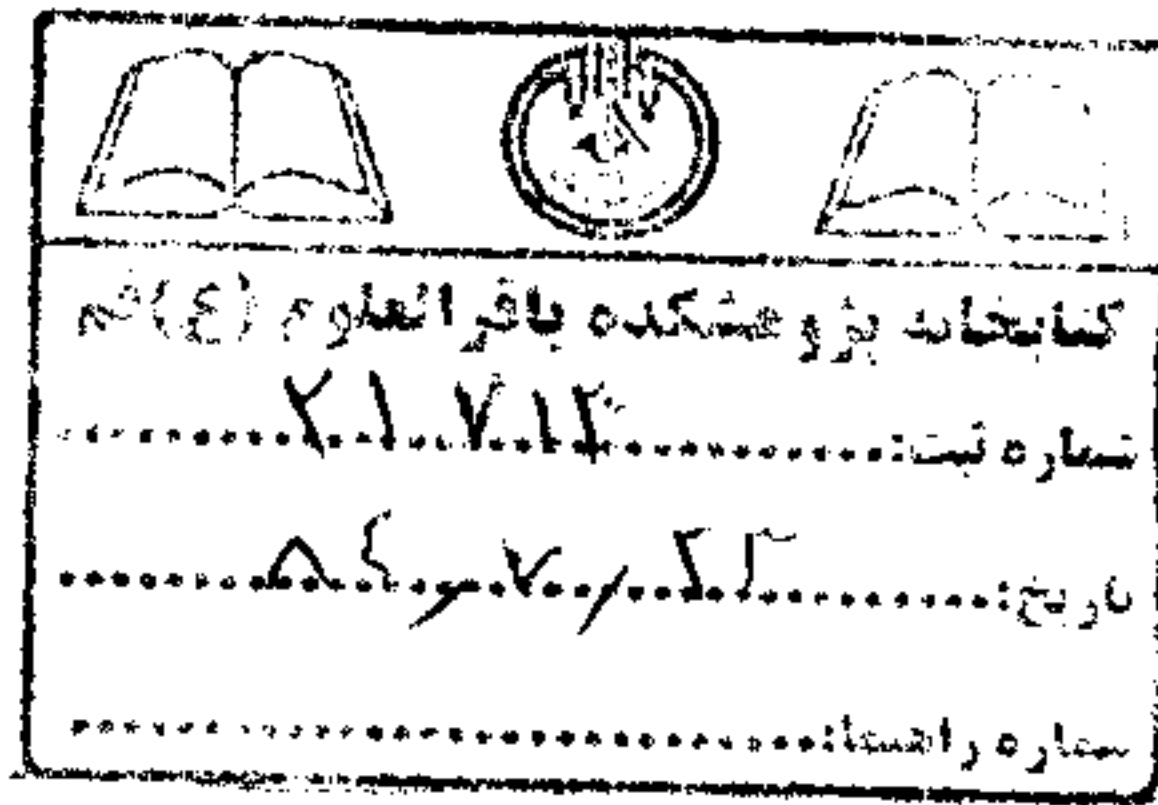 کتابخانه پژوهشکده باقر العلوم (ع) قم
شماره ثبت: ۲۱۷۱۳
تاریخ: ۸۴/۷/۲۳
شماره راهنما: